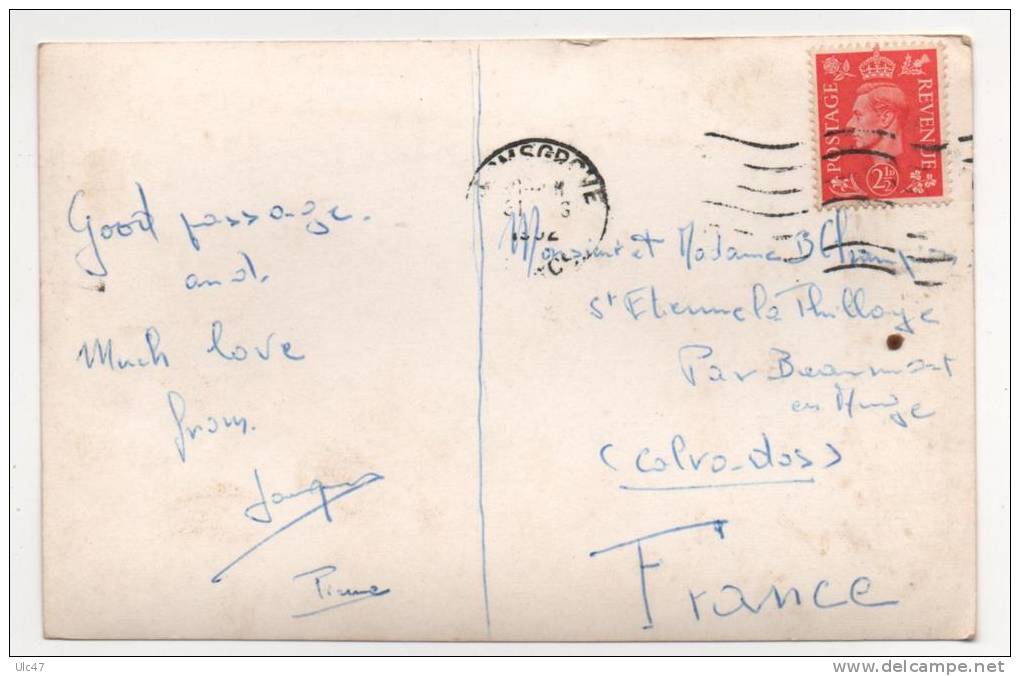 Good passage.
and.
Much love
from.
Jacques
Pierre
POSTAGE
REVENUE
2½D
1952
Monsieur et Madame B
St Etienne la Thillaye
Par Beaumont
en Auge
(Calvados)
France
Ulc47
www.delcampe.net